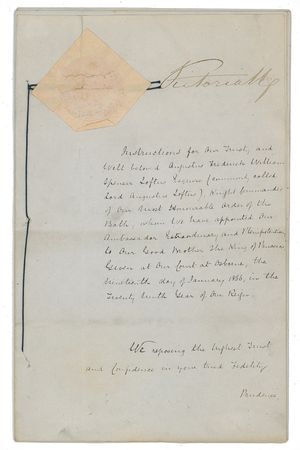 Victoria R
Instructions for Our Trusty and
Well beloved Augustus Frederick William
Spencer Loftus Esquire (commonly called
Lord Augustus Loftus), Knight Commander
of Our Most Honourable Order of the
Bath, whom We have appointed Our
Ambassador Extraordinary and Plenipotentiary
to Our Good Brother The King of Prussia
Given at Our Court at Osborne, the
Nineteenth day of January 1866, in the
Twenty ninth Year of Our Reign.
We reposing the highest Trust
and Confidence in your tried Fidelity
Prudence